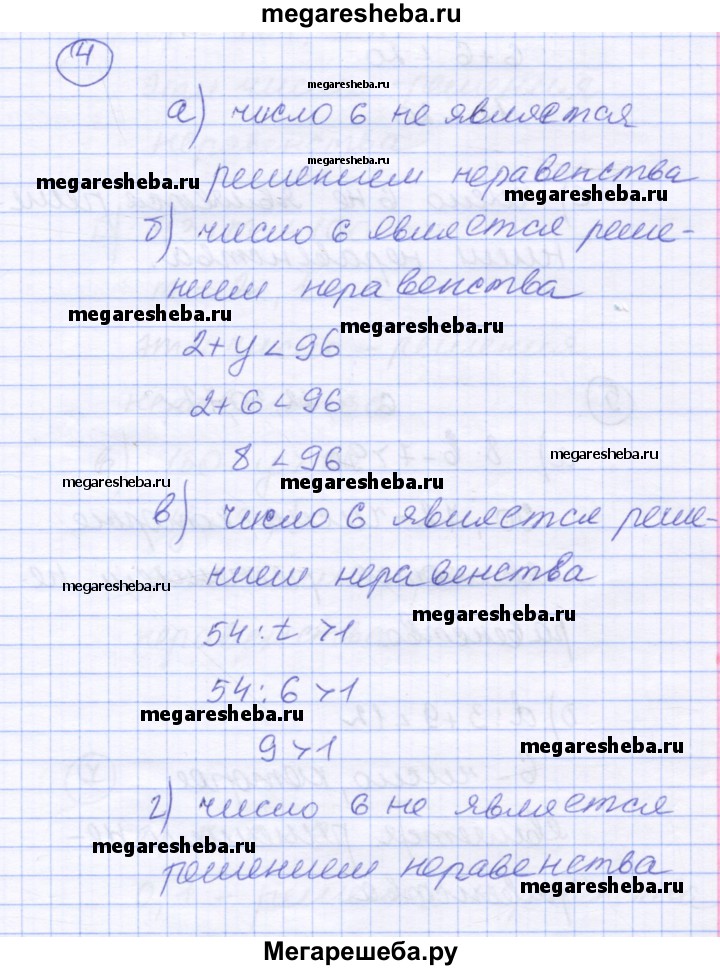 megaresheba.ru
4
megaresheba.ru
а) число 6 не является
megaresheba.ru
megaresheba.ru
решением неравенства
megaresheba.ru
б) число 6 является реше-
нием неравенства
megaresheba.ru
megaresheba.ru
2+y<96
2+6<96
megaresheba.ru
8<96
megaresheba.ru
megaresheba.ru
в) число 6 является реше-
нием неравенства
megaresheba.ru
megaresheba.ru
54:t>1
54:6>1
megaresheba.ru
9>1
megaresheba.ru
г) число 6 не является
megaresheba.ru
решением неравенства
megaresheba.ru
Мегарешеба.ру